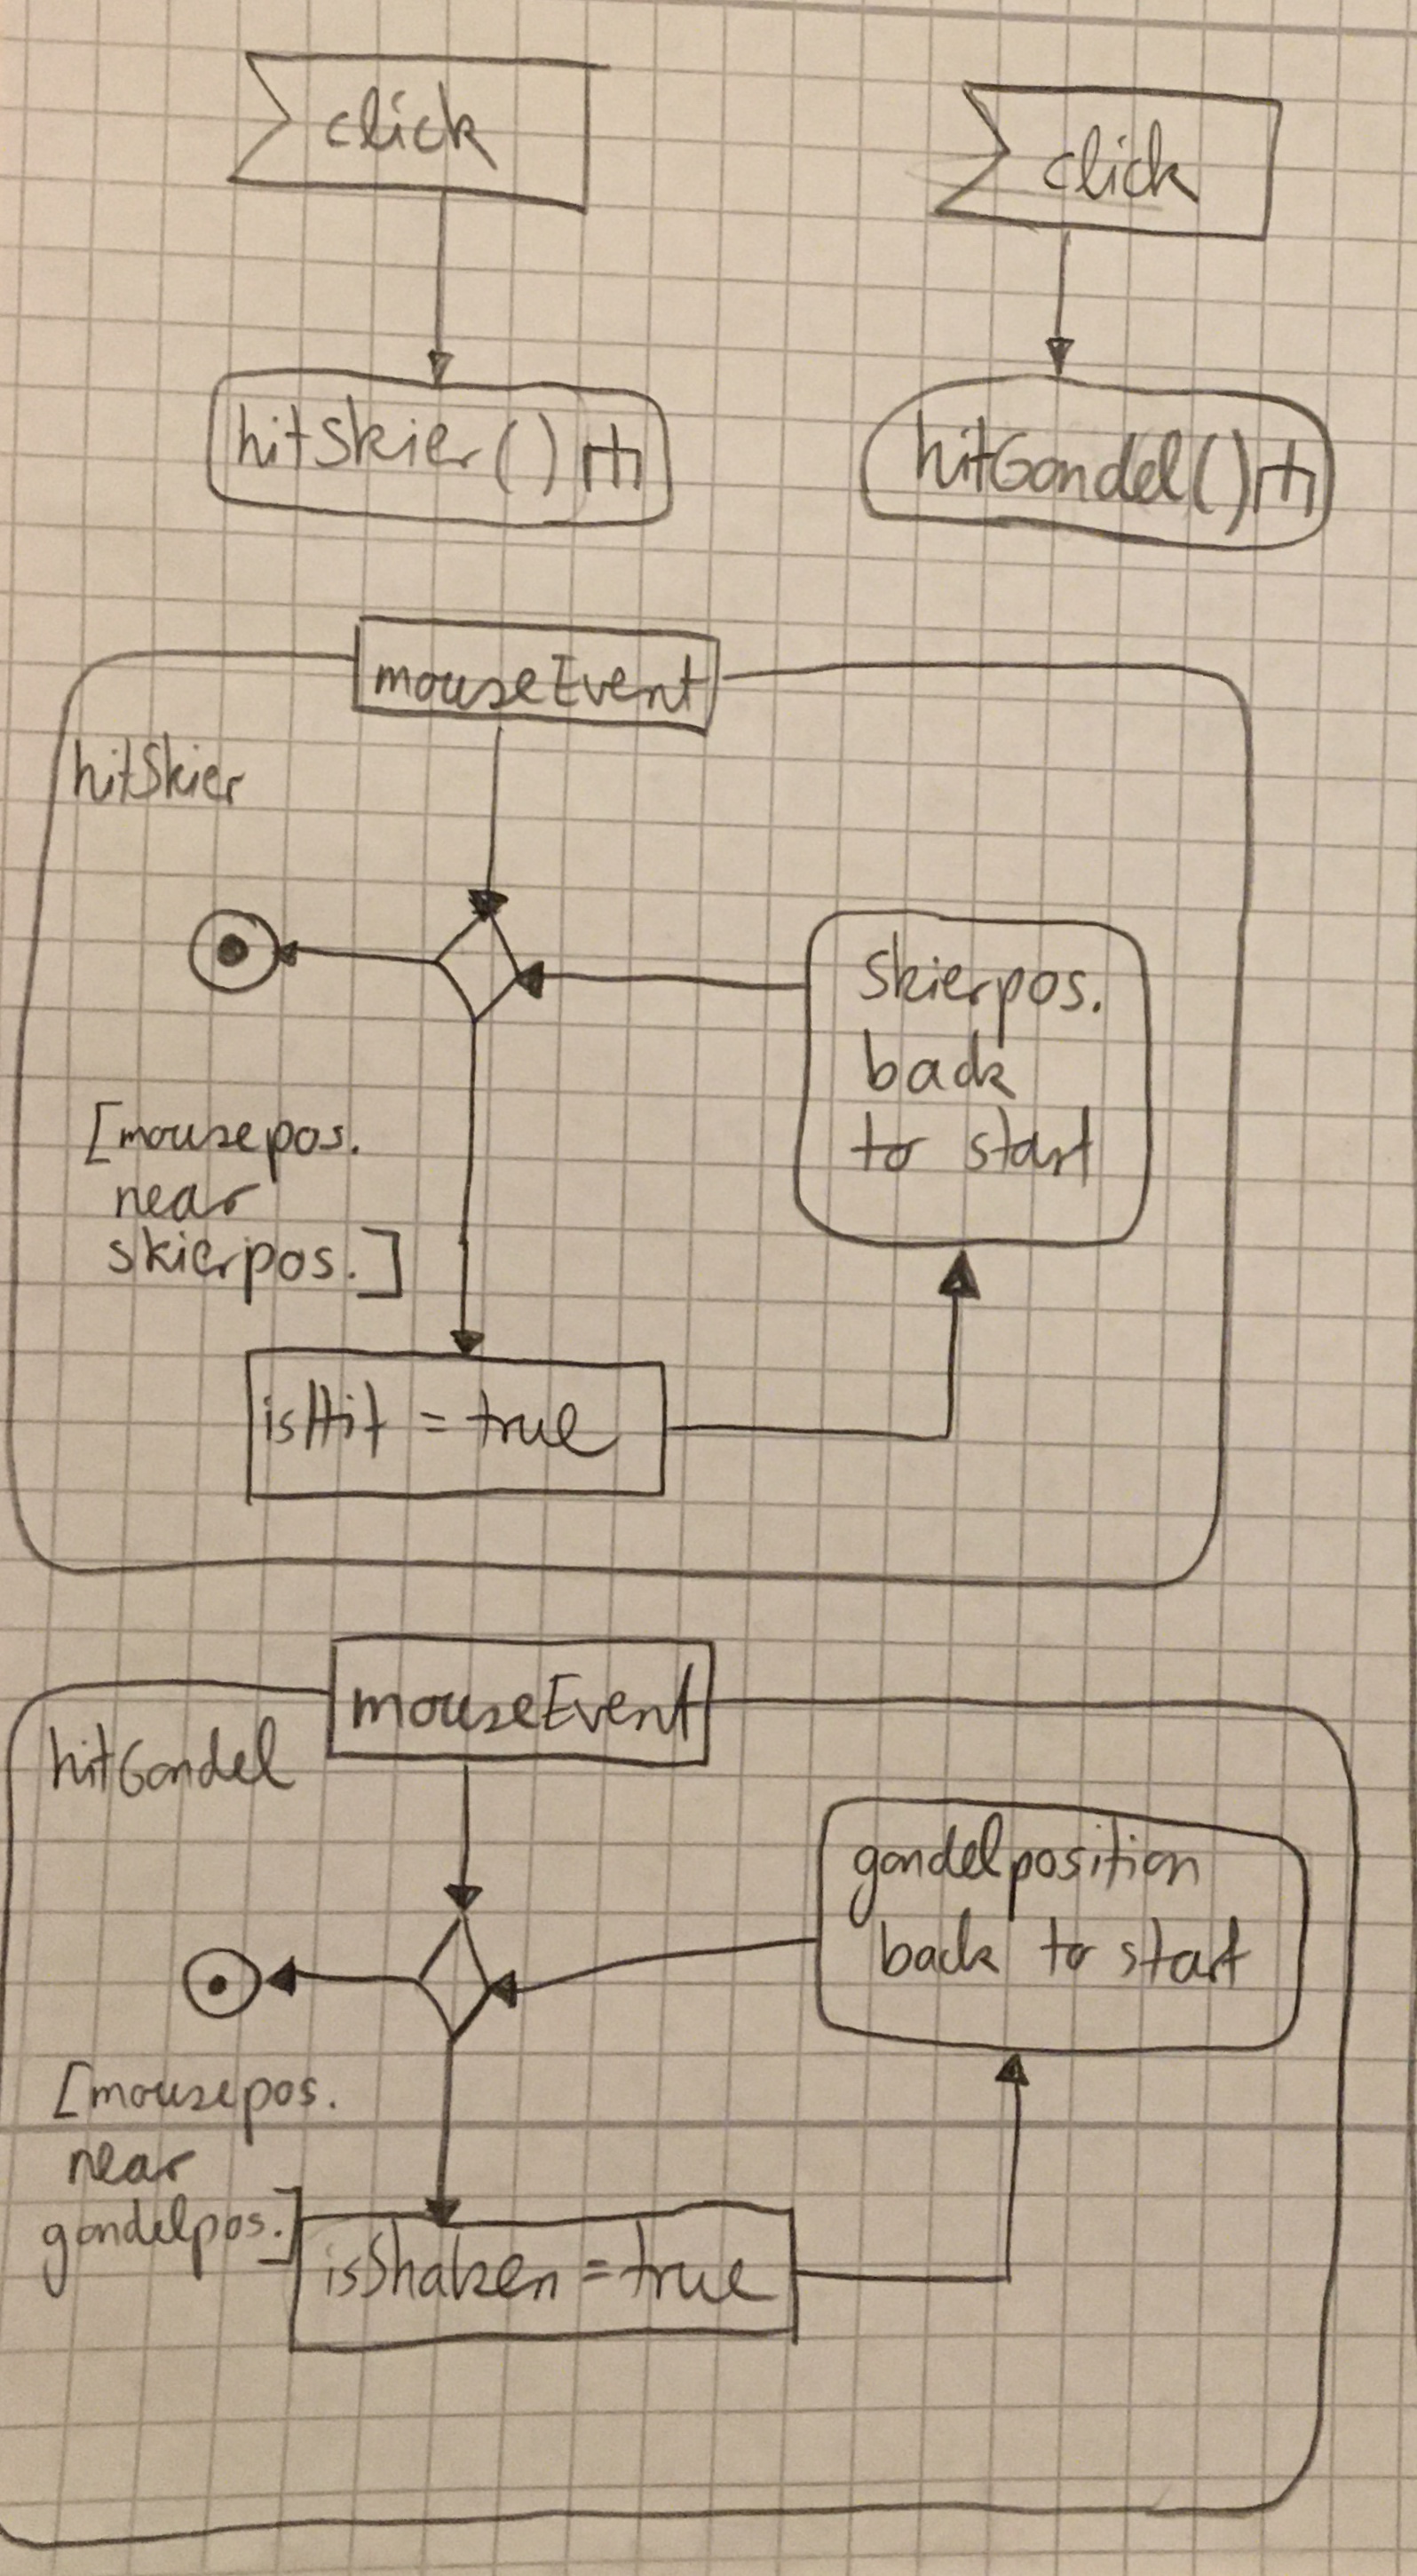 click
click
hitSkier()
hitGondel()
mouseEvent
hitSkier
Skierpos.
back
to start
[mousepos.
near
skierpos.]
isHit = true
mouseEvent
hitGondel
gondelposition
back to start
[mousepos.
near
gondelpos.]
isShaken = true